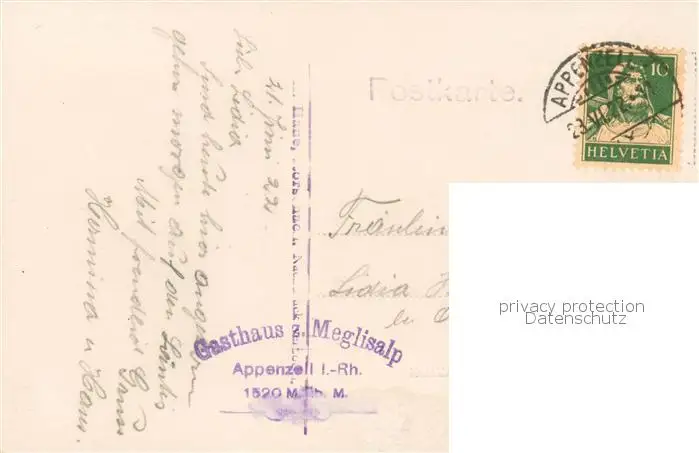 Postkarte.
APPENZELL
10
HELVETIA
21. Juni 22.
Lieb. Lidia
Sind heute hier angekommen
gehen morgen auf den Säntis
Mit freundlich Gruss
Hermina u Hans.
Fräulein
Lidia
Gasthaus z. Meglisalp
Appenzell I.-Rh.
1520 M. üb. M.
privacy protection
Datenschutz